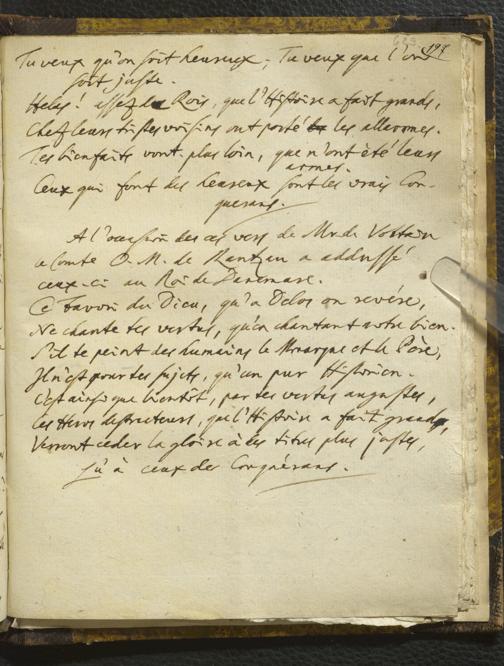 197
Tu veux qu'on soit heureux; Tu veux que l'on
soit juste.
Helas! assez de Rois, que l'Histoire a fait grands,
Chez leurs tristes voisins ont porté les allarmes.
Tes bienfaits vont plus loin, que n'ont été leurs
armes.
Ceux qui font des heureux sont les vrais Con-
querans.
A l'occasion de ces vers de Mr. de Voltaire
le Comte O. M. de Rantzau a addressé
ceux-ci au Roi de Danemarc.
Ce Favori du Dieu, qu'a Delos on revére,
Ne chante tes vertus, qu'en chantant notre bien.
S'il te peint des humains le Monarque et le Pére,
Il n'est pour tes sujets, qu'un pur Historien.
C'est ainsi que bientôt, par tes vertus augustes,
Les Heros destructeurs, que l'Histoire a fait grands,
Verront céder la gloire à des titres plus justes,
qu'à ceux des Conquérans.